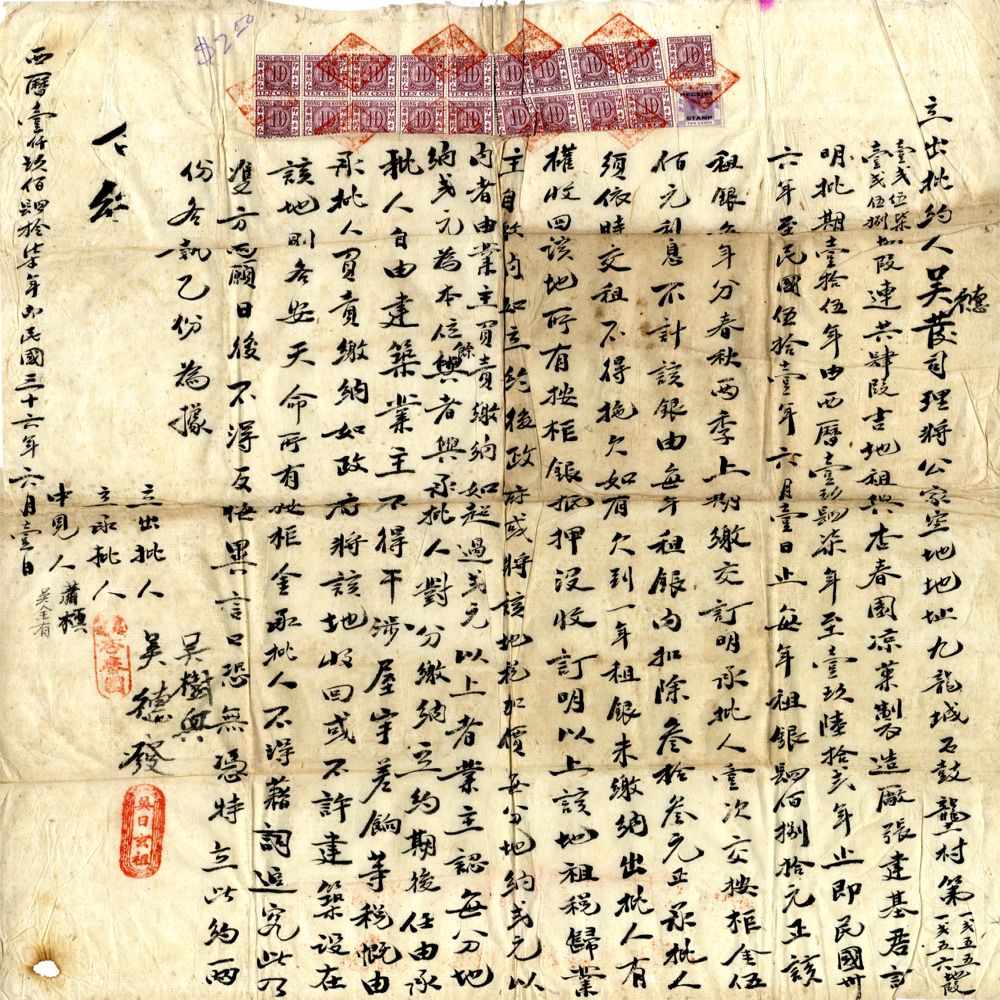 $2.50
HONG KONG
TEN CENTS
10
RECEIPT
STAMP
立出批約人吳德發司理將公家空地地址九龍城石鼓壟村第一弍五五一弍五六地段
壹弍伍柒壹弍伍捌地段連共肆段吉地租與杏春園凉菓制造廠張建基君訂
明批期壹拾伍年由西曆壹玖四柒年至壹玖陸拾弍年止即民國卅
六年至民國伍拾壹年六月壹日止每年租銀四佰捌拾元正該
租銀每年分春秋两季上期繳交訂明承批人壹次交按柜金伍
佰元利息不計該銀由每年租銀內扣除叁拾叁元正承批人
須依時交租不得拖欠如有欠到一年租銀未繳納出批人有
權收回該地所有按柜銀抵押沒收訂明以上該地租稅歸業
主自納如立約後政府或將該地稅加價每分地約弍元以
內者由業主負責繳納如超過弍元以上者業主認每分地
納弍元為本位餘者與承批人對分繳納立約期後任由承
批人自由建築業主不得干涉屋宇差餉等稅慨由
承批人負責繳納如政府將該地收回或不許建築設在
該地則各安天命所有按柜金承批人不得藉詞追究此乃
雙方面願日後不得反悔異言口恐無憑特立此約两
份各執乙份為據
立出批人 吳樹興 吳德發
吳日玄祖
立承批人
杏春園
中見人 蕭積 吳全有
西曆壹仟玖佰四拾柒年即民國三十六年六月壹日